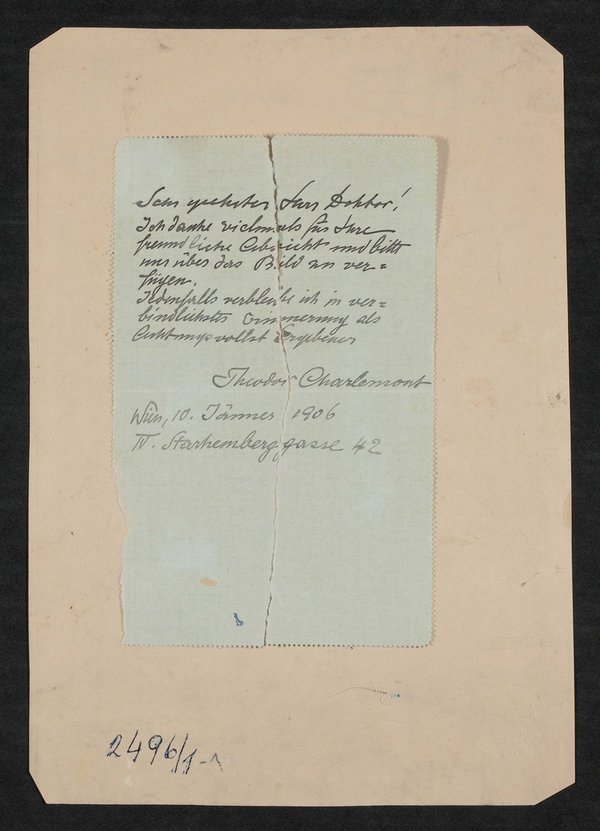 Sehr geehrter Herr Doktor!
Ich danke vielmals für Ihre
freundliche Absicht und bitte
nur über das Bild zu ver=
fügen.
Jedenfalls verbleibe ich in ver=
bindlichster Erinnerung als
Achtungsvollst Ergebener
Theodor Charlemont
Wien, 10. Jänner 1906
IV. Starhemberggasse 42
2496/1-1